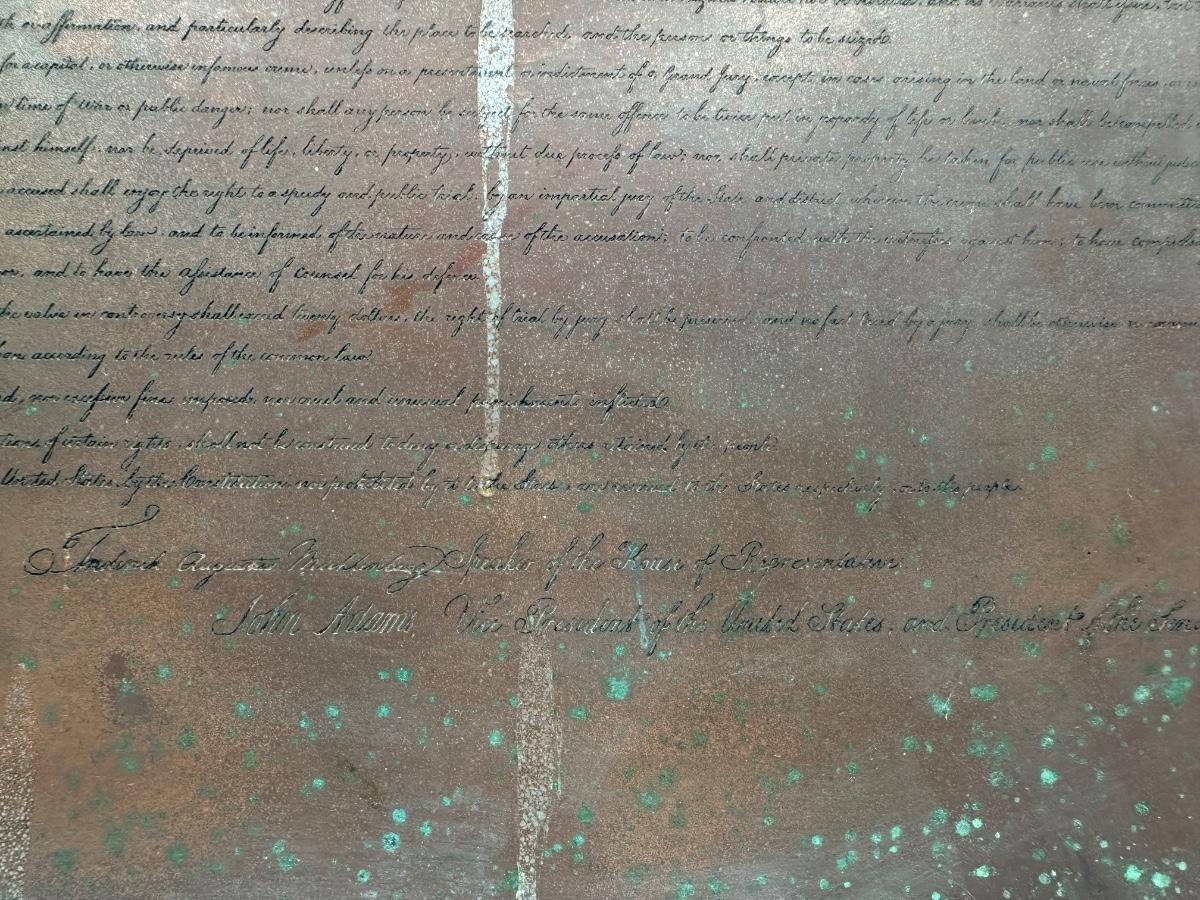 or affirmation, and particularly describing the place to be searched, and the persons or things to be seized.
for a capital, or otherwise infamous crime, unless on a presentment or indictment of a Grand Jury, except in cases arising in the land or naval forces, or
time of War or public danger; nor shall any person be subject for the same offence to be twice put in jeopardy of life or limb, nor shall be compelled
himself, nor be deprived of life, liberty, or property, without due process of law; nor shall private property be taken for public use without just
accused shall enjoy the right to a speedy and public trial, by an impartial jury of the State and district wherein the crime shall have been committed
ascertained by law, and to be informed of the nature and cause of the accusation; to be confronted with the witnesses against him; to have
and to have the assistance of counsel for his defence.
the value in controversy shall exceed twenty dollars, the right of trial by jury shall be preserved, and no fact tried by a jury shall be otherwise
according to the rules of the common law.
nor excessive fines imposed, nor cruel and unusual punishments inflicted.
of certain rights, shall not be construed to deny or disparage others retained by the people.
United States by the Constitution, nor prohibited by it to the States, are reserved to the States respectively, or to the people.
Frederick Augustus Muhlenberg Speaker of the House of Representatives.
John Adams, Vice President of the United States, and President of the